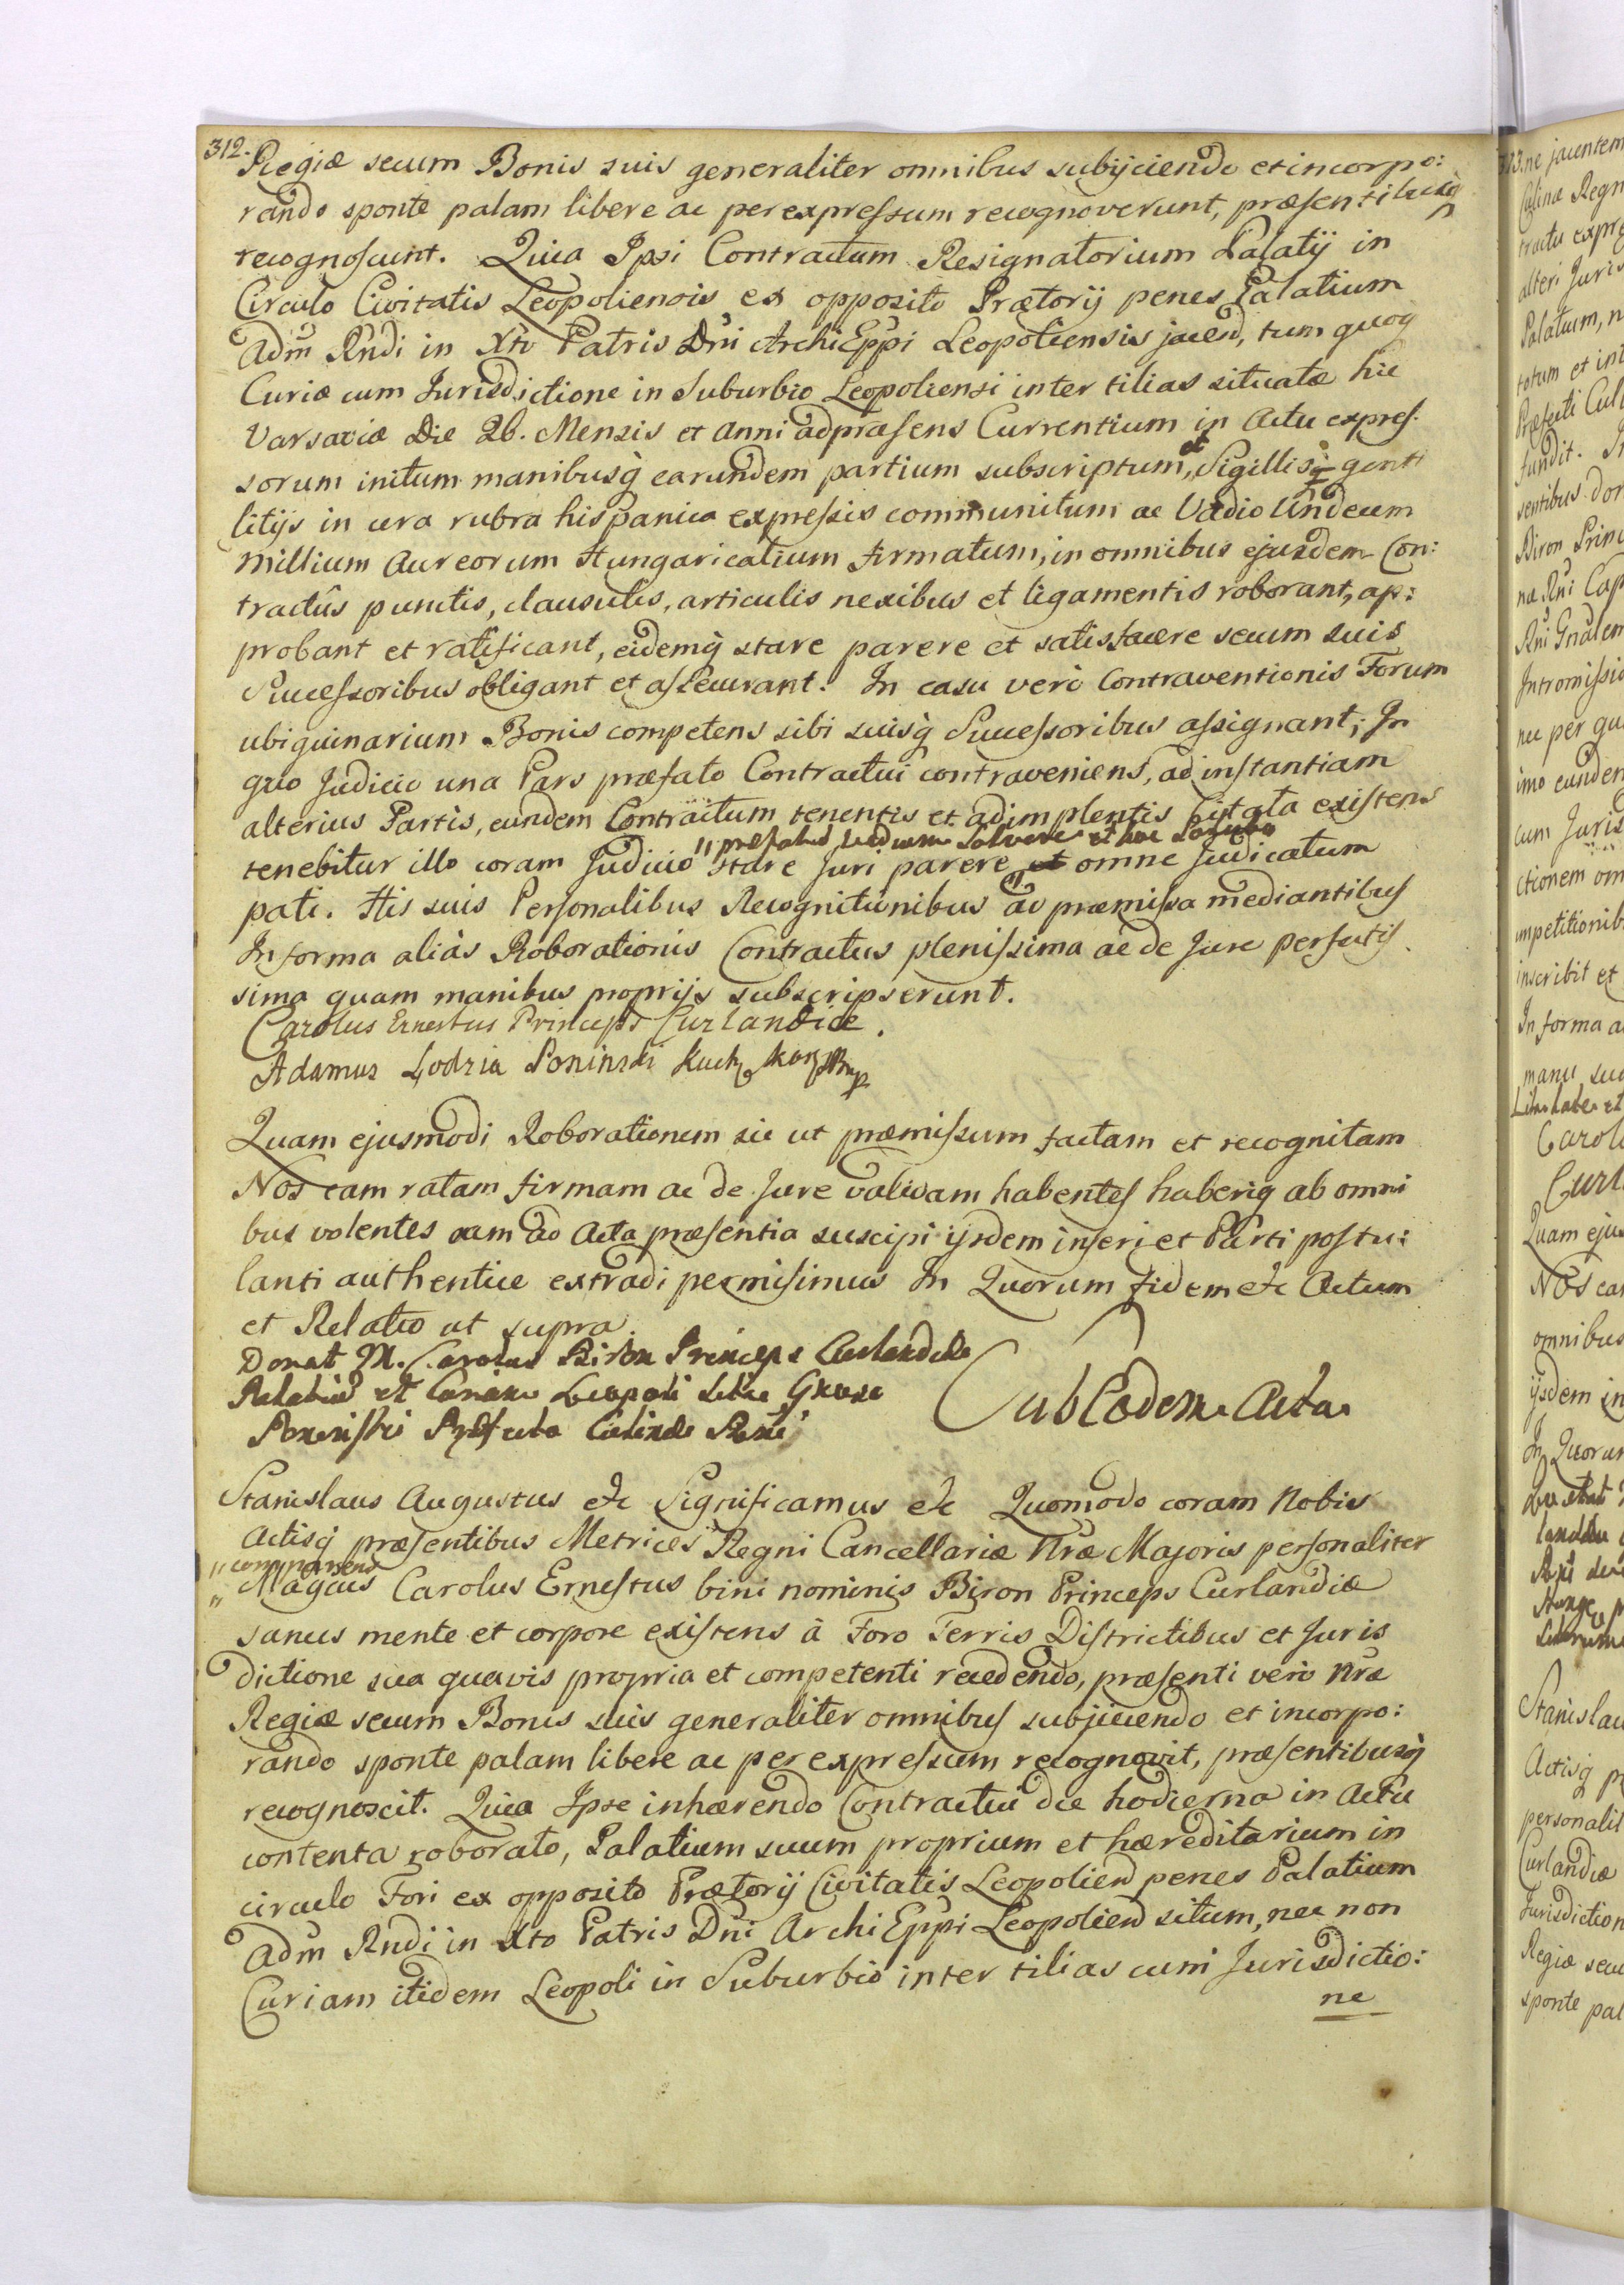 312.
Regiæ secum Bonis suis generaliter omnibus subijciendo et incorpo:
rando sponte palam libere ac per expressum recognoverunt, præsentibusq́
recognoscunt. Quia Ipsi Contractum Resignatorium Palatij in
Circulo Civitatis Leopoliensis ex opposito Prætorij penes Palatium
Adm̃ Rñdi in Xto Patris Dñi ArchiEppi Leopoliensis jacen̄, tum quoq́
Curiæ cum Jurisdictione in Suburbio Leopoliensi inter tilias situatæ hic
Varsaviæ Die 26. Mensis et Anni ad præsens Currentium in Actu expres-
sorum initum manibusq́ earundem partium subscriptum, et Sigillis genti
litijs in cera rubra hispanica expressis communitum ac Vadio Undecim
Millium Aureorum Hungaricalium firmatum, in omnibus ejusdem Con:
tractûs punctis, clausulis, articulis nexibus et ligamentis roborant, ap:
probant et ratificant, eidemq́ stare parere et satisfacere secum suis
Successoribus obligant et assecurant. In casu verò Contraventionis Forum
ubiquinarium Bonis competens sibi suisq́ Successoribus assignant; In
quo Judicio una Pars præfato Contractui contraveniens, ad instantiam
alterius Partis, eundem Contractum tenentis et adimplentis Citata existens
"præfatum vadium solvere et hoc soluto
tenebitur illo coram Judicio stare Juri parere et omne Judicatum
pati. His suis Personalibus Recognitionibus ad præmissa mediantibus
In forma aliàs Roborationis Contractus plenissima ac de Jure perfectis
sima quam manibus proprijs subscripserunt.
Carolus Ernestus Princeps Curlandiæ.
Adamus Łodzia Poninski Kuch Kor
Quam ejusmodi Roborationem sic ut præmissum factam et recognitam
Nos eam ratam firmam ac de Jure validam habentes haberiq́ ab omni
bus volentes eam ad Acta præsentia suscipi ijsdem inseri et Parti postu:
lanti authentice extradi permisimus In Quorum fidem etc Actum
et Relatio ut supra.
Donat M. Carolus Biron Princeps Curlandiæ
Palatium et Curiam Leopoli
Poninski Præfecto Culinæ Regni
Sub Eodem Actu
Stanislaus Augustus etc Significamus etc Quomodo coram Nobis
Actisq́ præsentibus Metrices Regni Cancellariæ Nr̃æ Majoris personaliter
"comparens
" Magcus Carolus Ernestus bini nominis Biron Princeps Curlandiæ
sanus mente et corpore existens à Foro Terris Districtibus et Juris
dictione sua quavis propria et competenti recedendo, præsenti verò Nr̃æ
Regiæ secum Bonis suis generaliter omnibus subjiciendo et incorpo:
rando sponte palam libere ac per expressum recognovit, præsentibusq́
recognoscit. Quia Ipse inhærendo Contractui die hodierna in Actu
contenta roborato, Palatium suum proprium et hæreditarium in
circulo Fori ex opposito Prætorij Civitatis Leopolien̄ penes Palatium
Adm̃ Rñdi in Xto Patris Dñi ArchiEppi Leopolien̄ situm, nec non
Curiam itidem Leopoli in Suburbio inter tilias cum Jurisdictio:
ne